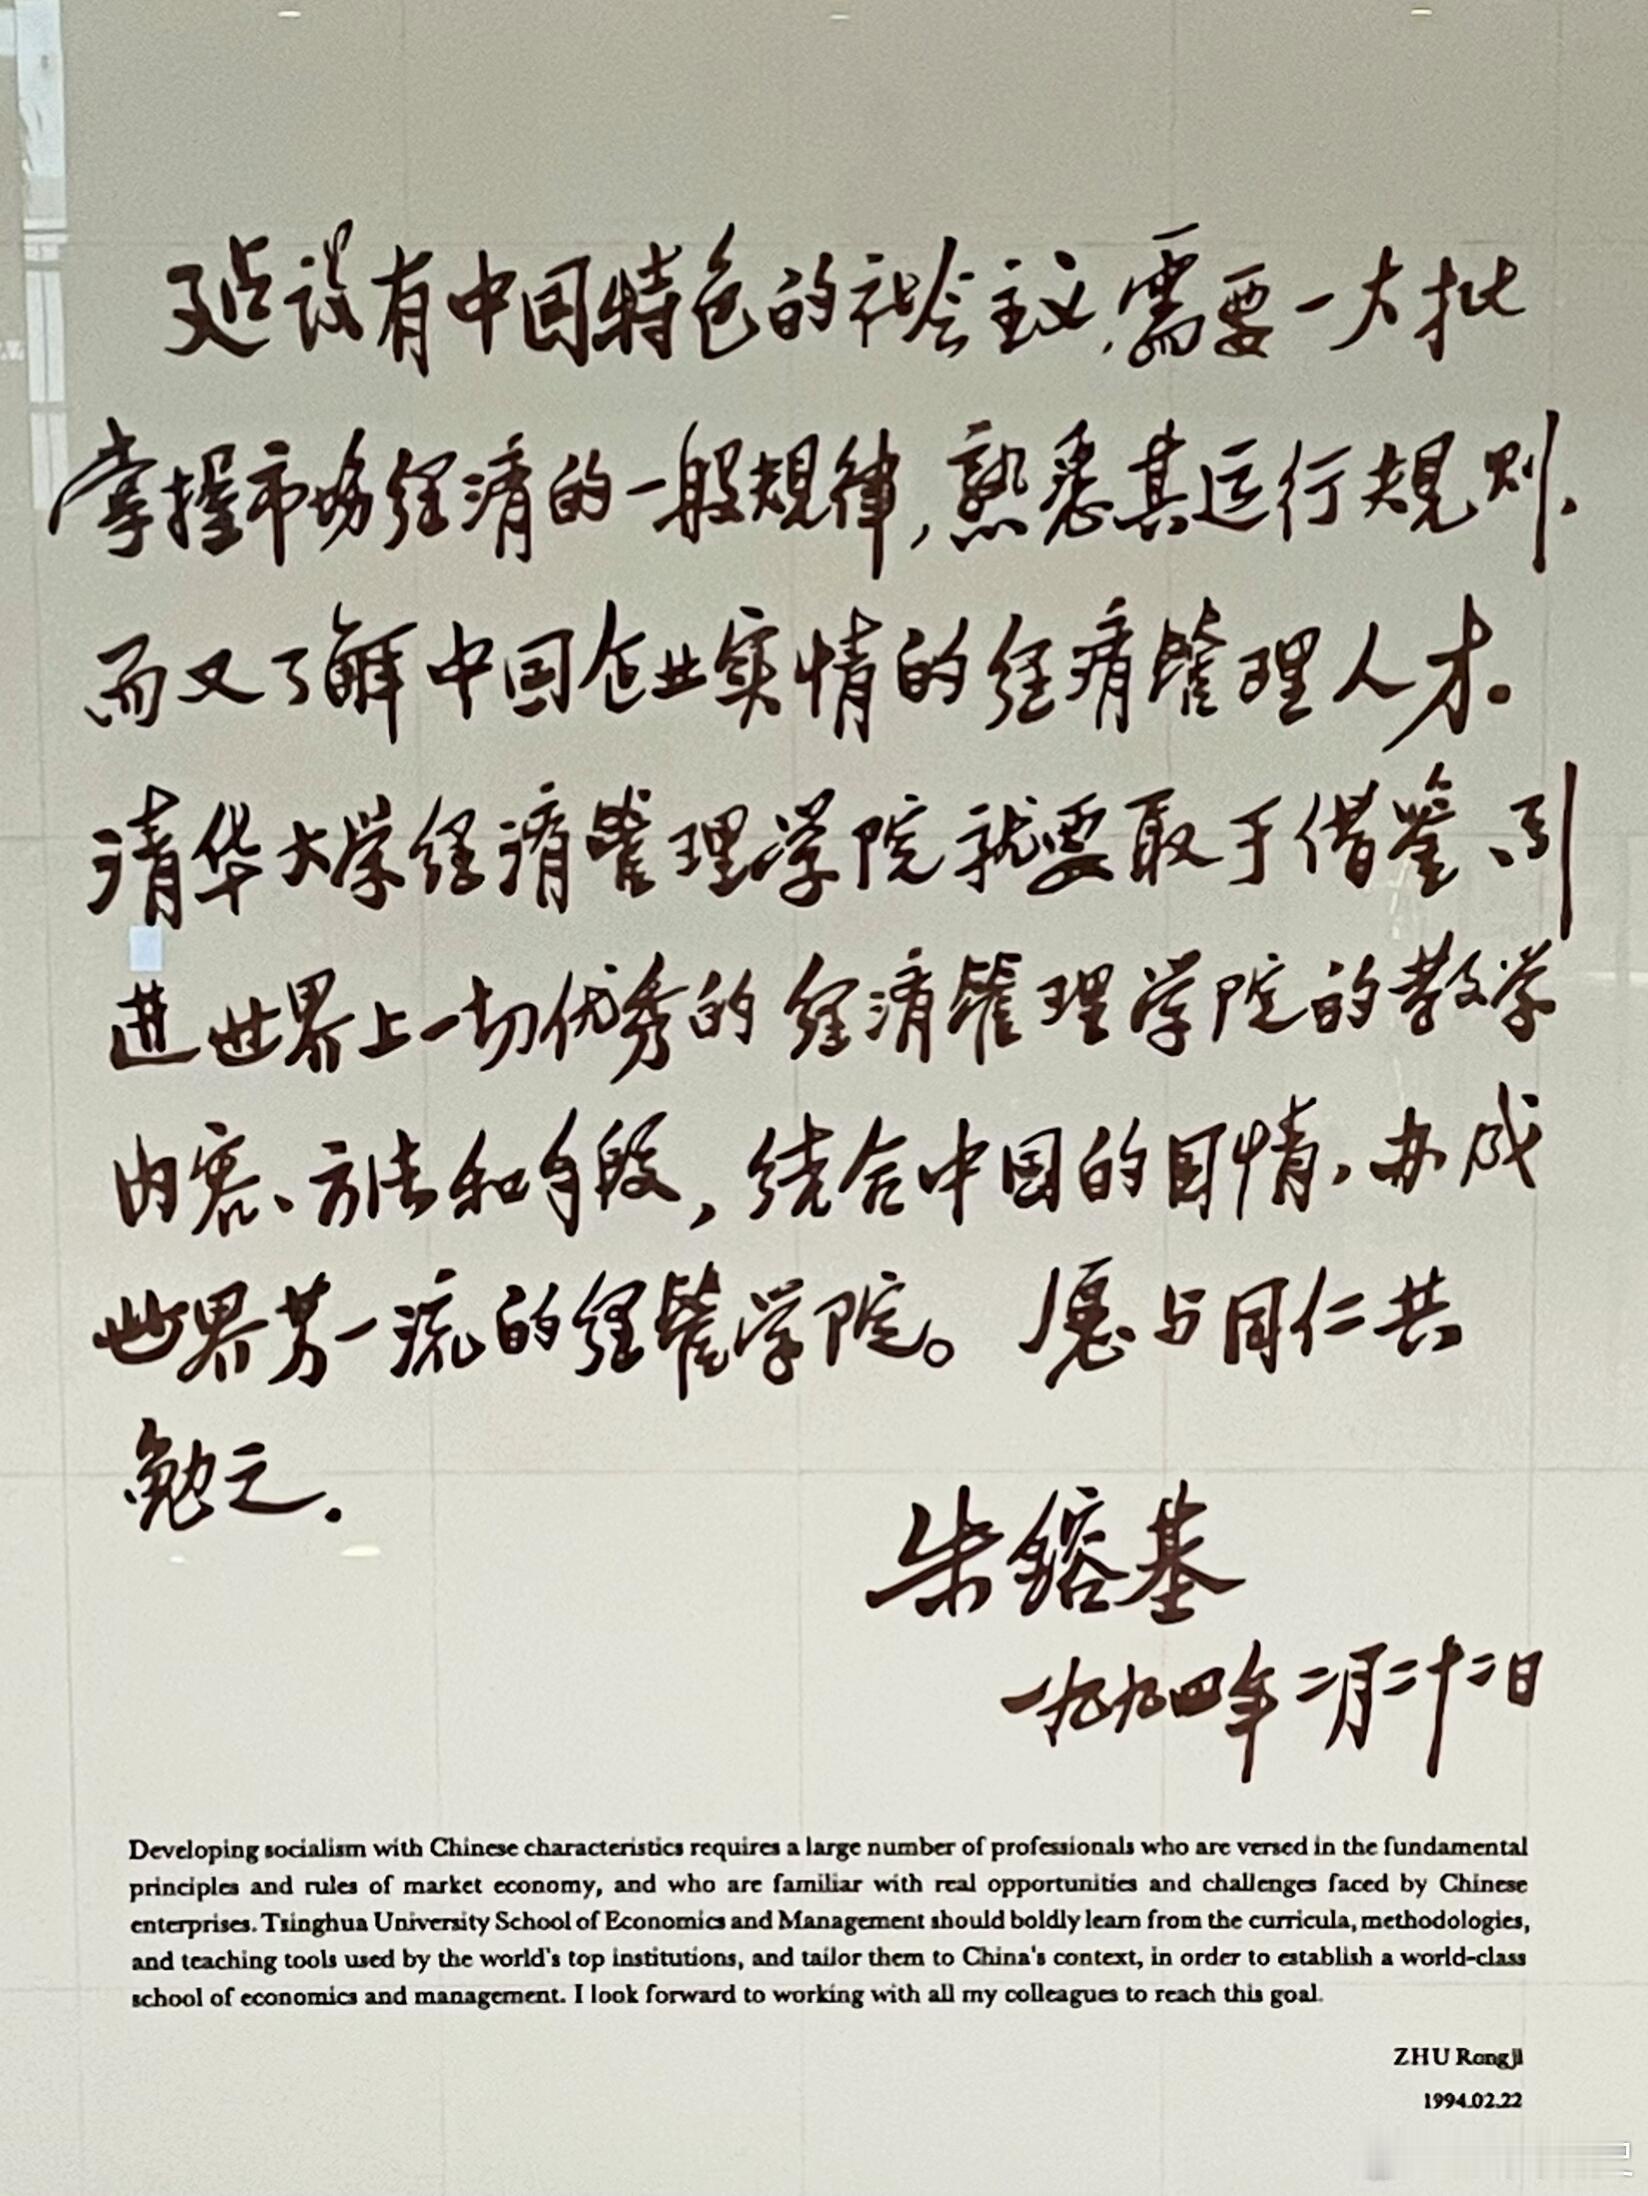 建设有中国特色的社会主义，需要一大批
掌握市场经济的一般规律，熟悉其运行规则、
而又了解中国企业实情的经济管理人才。
清华大学经济管理学院就要敢于借鉴、引
进世界上一切优秀的经济管理学院的教学
内容、方法和手段，结合中国的国情，办成
世界第一流的经管学院。愿与同仁共
勉之.
朱镕基
一九九四年二月二十二日
Developing socialism with Chinese characteristics requires a large number of professionals who are versed in the fundamental
principles and rules of market economy, and who are familiar with real opportunities and challenges faced by Chinese
enterprises. Tsinghua University School of Economics and Management should boldly learn from the curricula, methodologies,
and teaching tools used by the world's top institutions, and tailor them to China's context, in order to establish a world-class
school of economics and management. I look forward to working with all my colleagues to reach this goal.
ZHU Rongji
1994.02.22